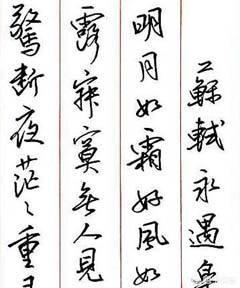 蘇軾永遇
明月如霜好風如
露寂寞無人見
驚斷夜茫々重